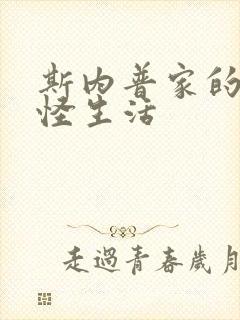 斯内普家的
怪生活
走過青春歲月